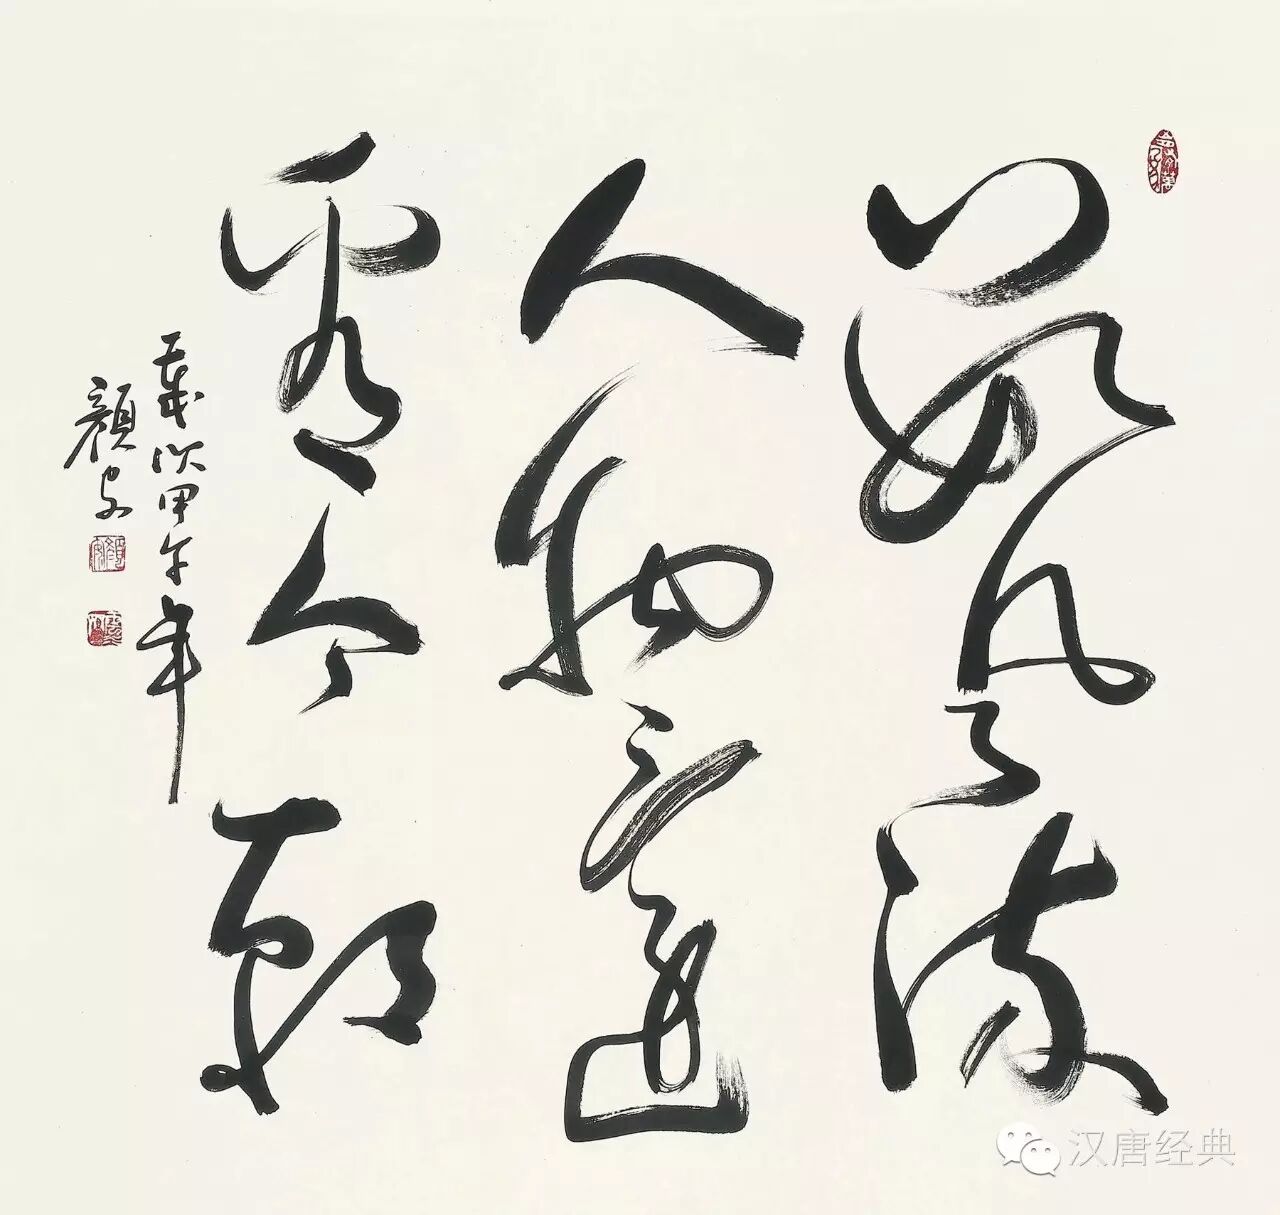 數風流
人物還
看今朝
歲次甲午年
顏安
汉唐经典